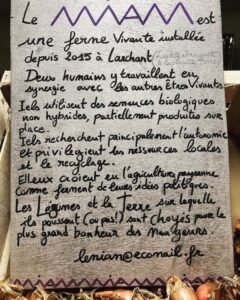 Le MIAM est
une ferme Vivante installée
depuis 2015 à Larchant
Deux humains y travaillent en
synergie avec les autres êtres Vivants.
Iels utilisent des semences biologiques
non hybrides, partiellement produites sur
place.
Iels recherchent principalement l'autonomie
et privilégient les ressources locales
et le recyclage.
Elleux croient en l'agriculture paysanne
comme ferment de leurs idées politiques.
Les Légumes et la Terre sur laquelle
ils poussent (ou pas!) sont choyés pour le
plus grand bonheur des Mangeurs.
leniano@econail.fr